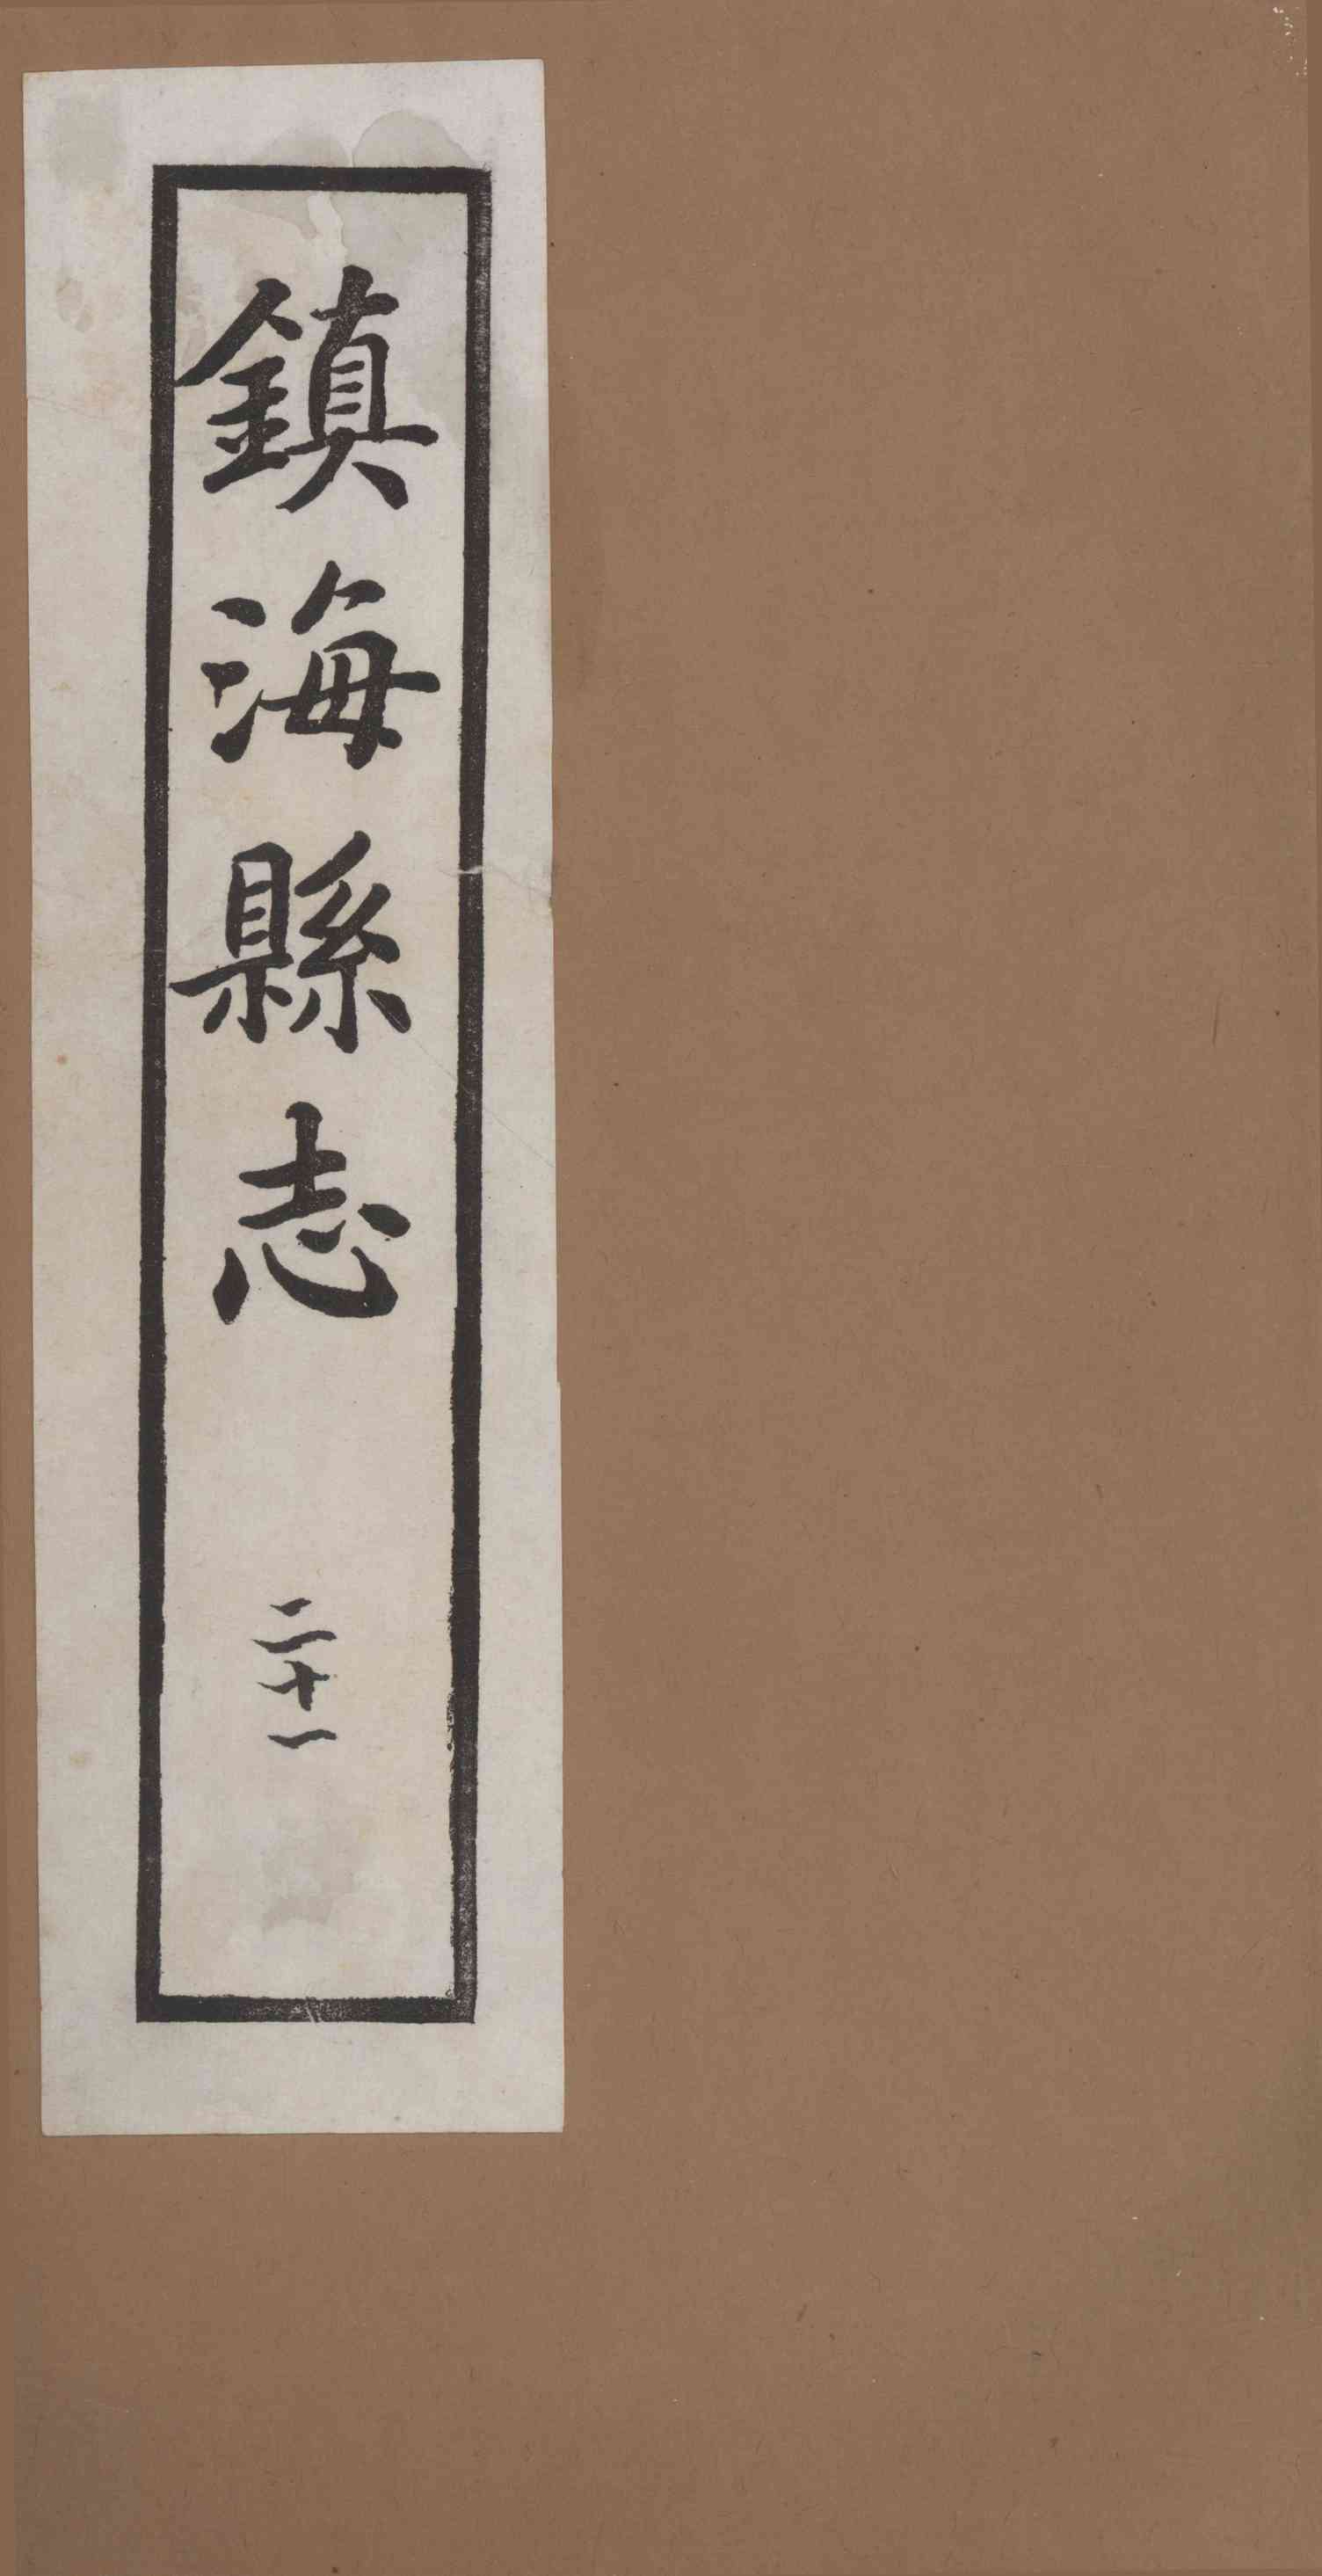 鎮海縣志
二十一